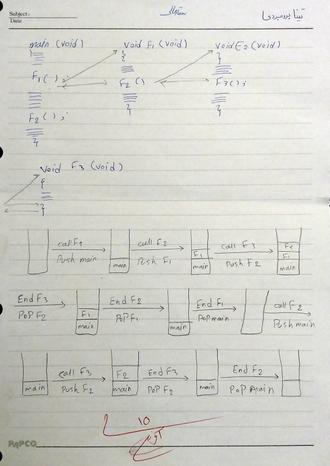 Subject:
Date
main (void)
void F1 (void)
void F2 (void)
{
{
{
F1 ( ) ;
F2 ( )
F3 ( ) ;
}
}
F2 ( ) ;
}
void F3 (void)
{
}
call F1
call F2
call F3
Push main
Push F1
Push F2
main
F1
main
F2
F1
main
End F3
End F2
End F1
call F2
PoP F2
PoP F1
PoP main
Push main
F1
main
main
call F3
End F3
End F2
Push F2
PoP F2
PoP main
main
F2
main
main
10
PAPCO